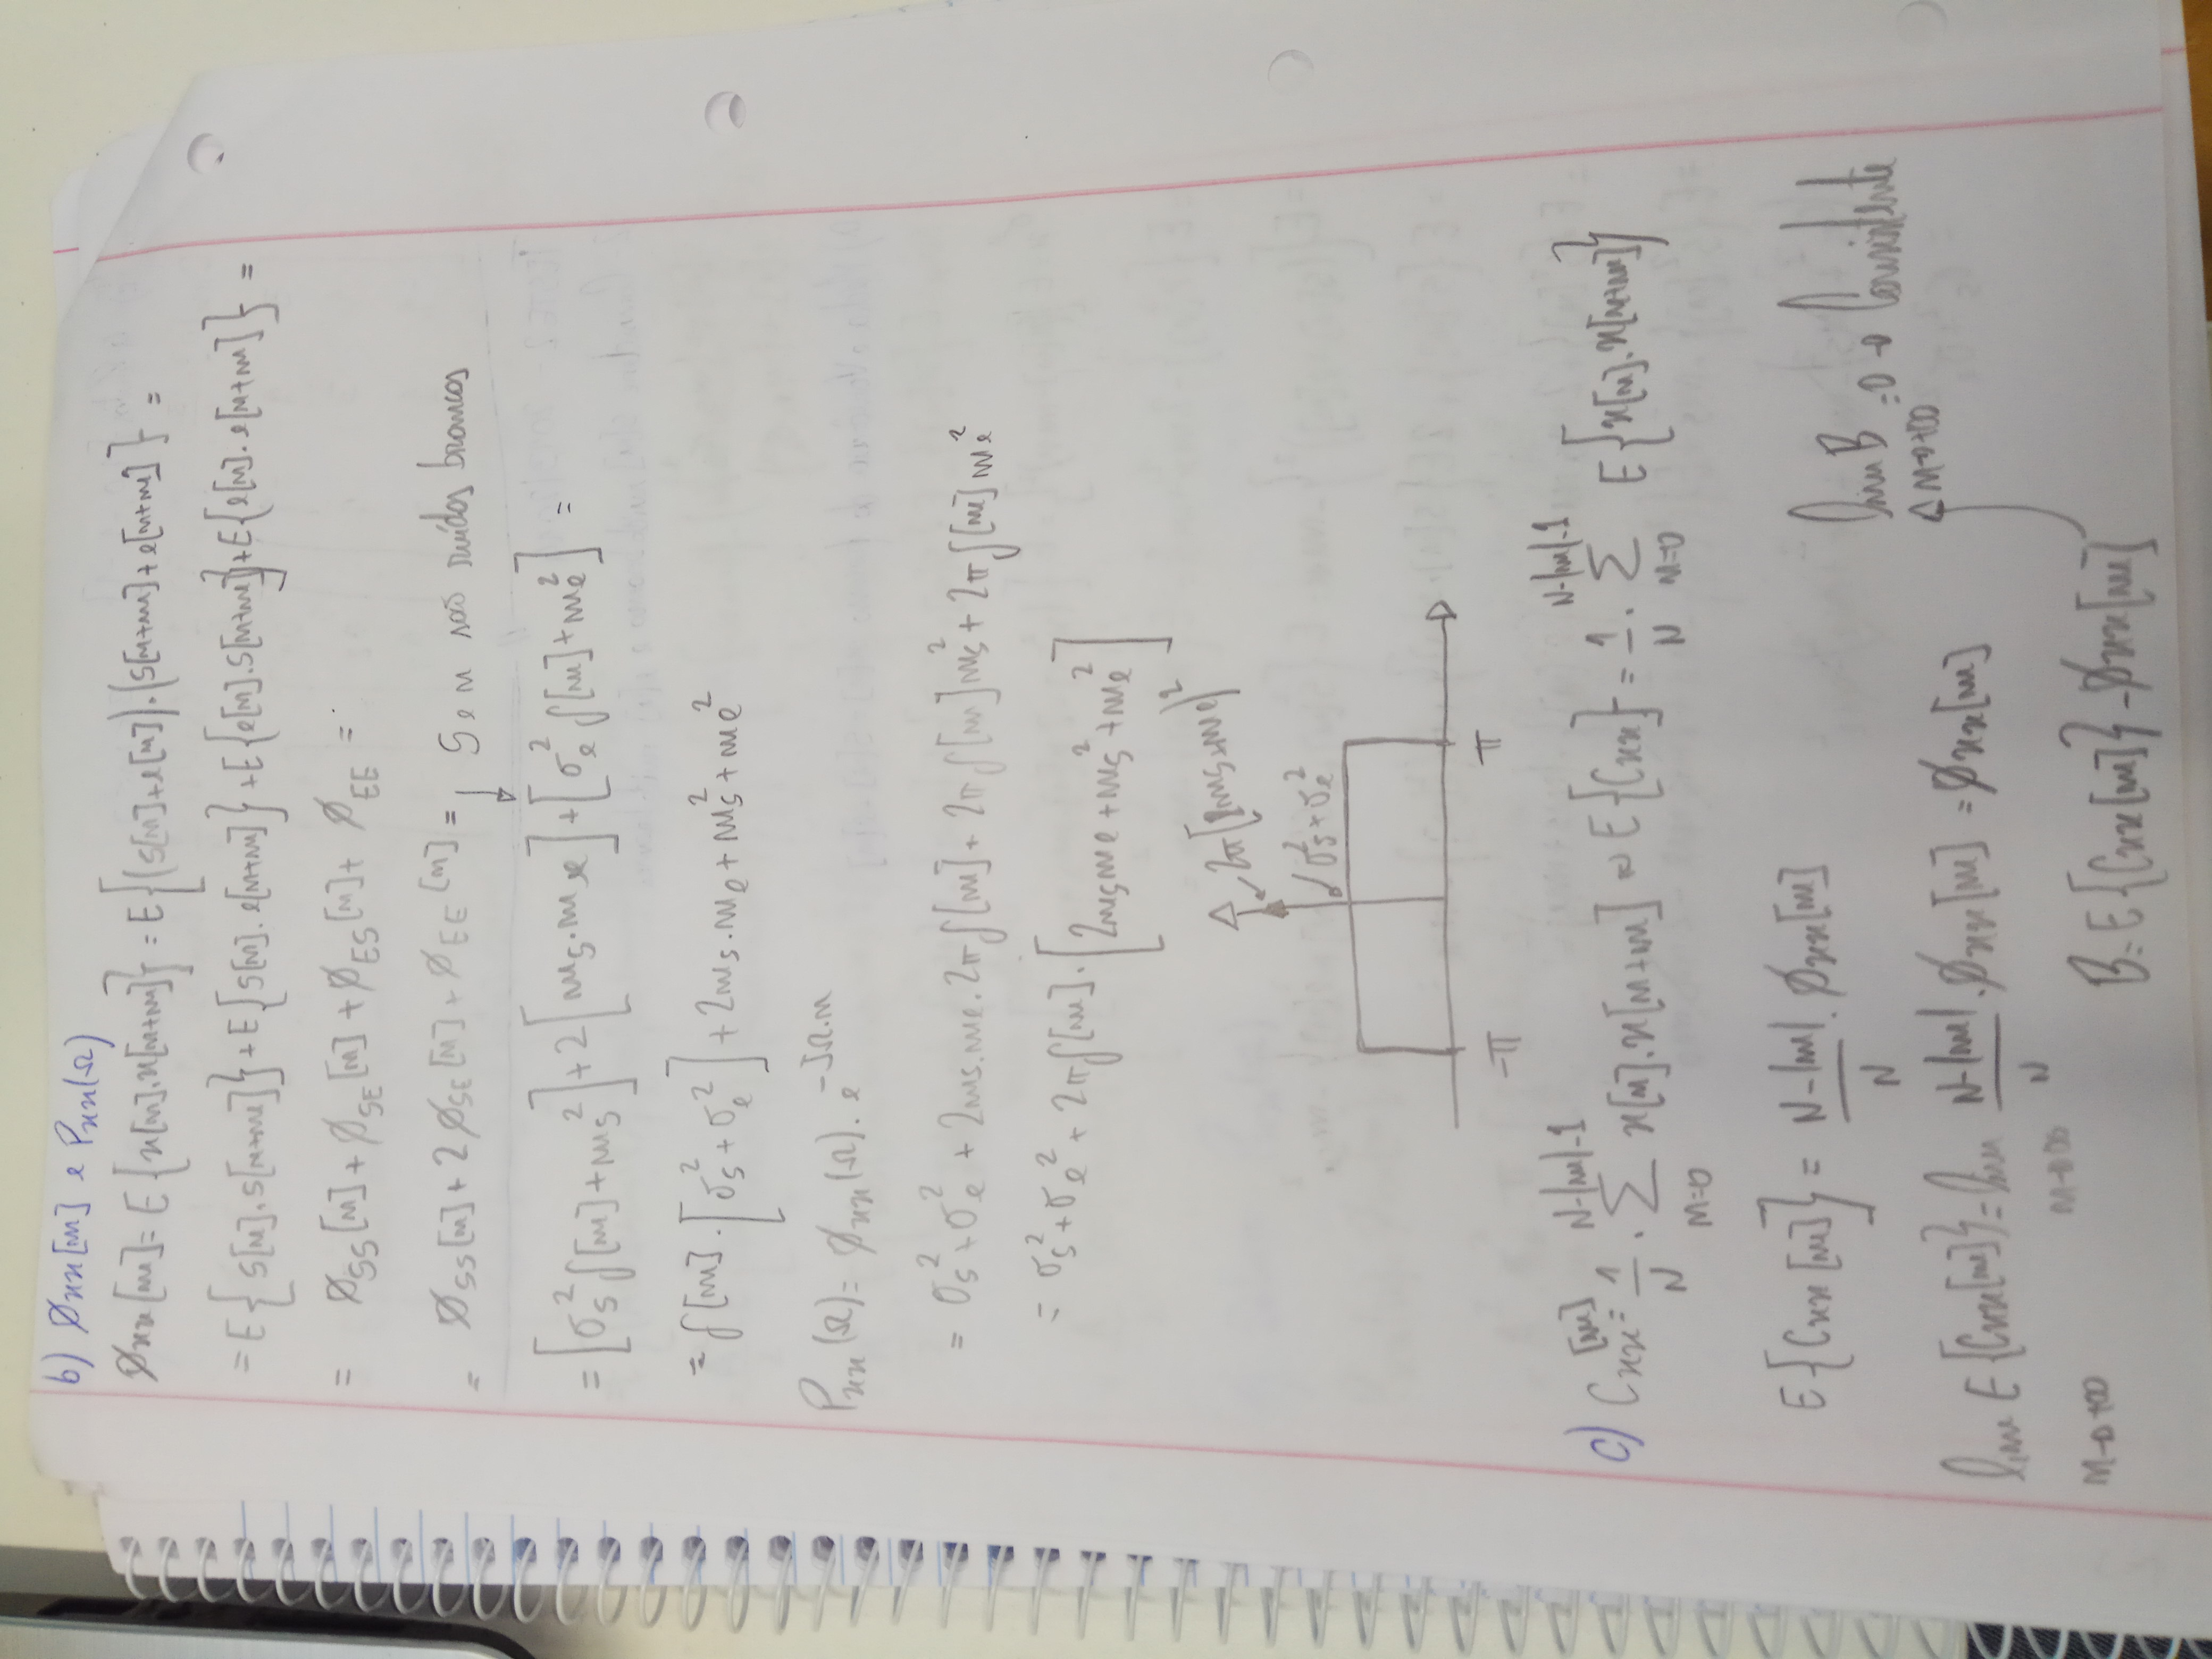 b) Øxx[m] e Pxx(Ω)
Øxx[m] = E{x[n].x[n+m]} = E{(s[n]+e[n]).(s[n+m]+e[n+m]} =
= E{s[n].s[n+m]} + E{s[n].e[n+m]} + E{e[n].s[n+m]} + E{e[n].e[n+m]} =
= Øss[m] + ØSE[m] + ØES[m] + ØEE =
= Øss[m] + 2ØSE[m] + ØEE[m] = ↓ S e n são ruídos brancos
= [σs² δ[m] + ms²] + 2[ms.me] + [σe² δ[m] + me²] =
= δ[m].[σs² + σe²] + 2ms.me + ms² + me²
Pxx(Ω) = Øxx(Ω).e^-JΩ.n
= σs² + σe² + 2ms.me.2π δ[m] + 2π δ[m] ms² + 2π δ[m] me²
= σs² + σe² + 2π δ[m].[2msme + ms² + me²]
2π(ms+me)²
σs² + σe²
-π π
c) Cxx[m] = 1/N . Σ_{n=0}^{N-|m|-1} x[n].x[n+m] ∾ E{Cxx} = 1/N . Σ_{n=0}^{N-|m|-1} E{x[n].x[n+m]}
E{Cxx[m]} = N-|m|/N . Øxx[m]
lim B = 0 → Consistente
n→+∞
lim E{Cxx[m]} = lim N-|m|/N . Øxx[m] = Øxx[m]
n→+∞ n→∞
B = E{Cxx[m]} - Øxx[m]